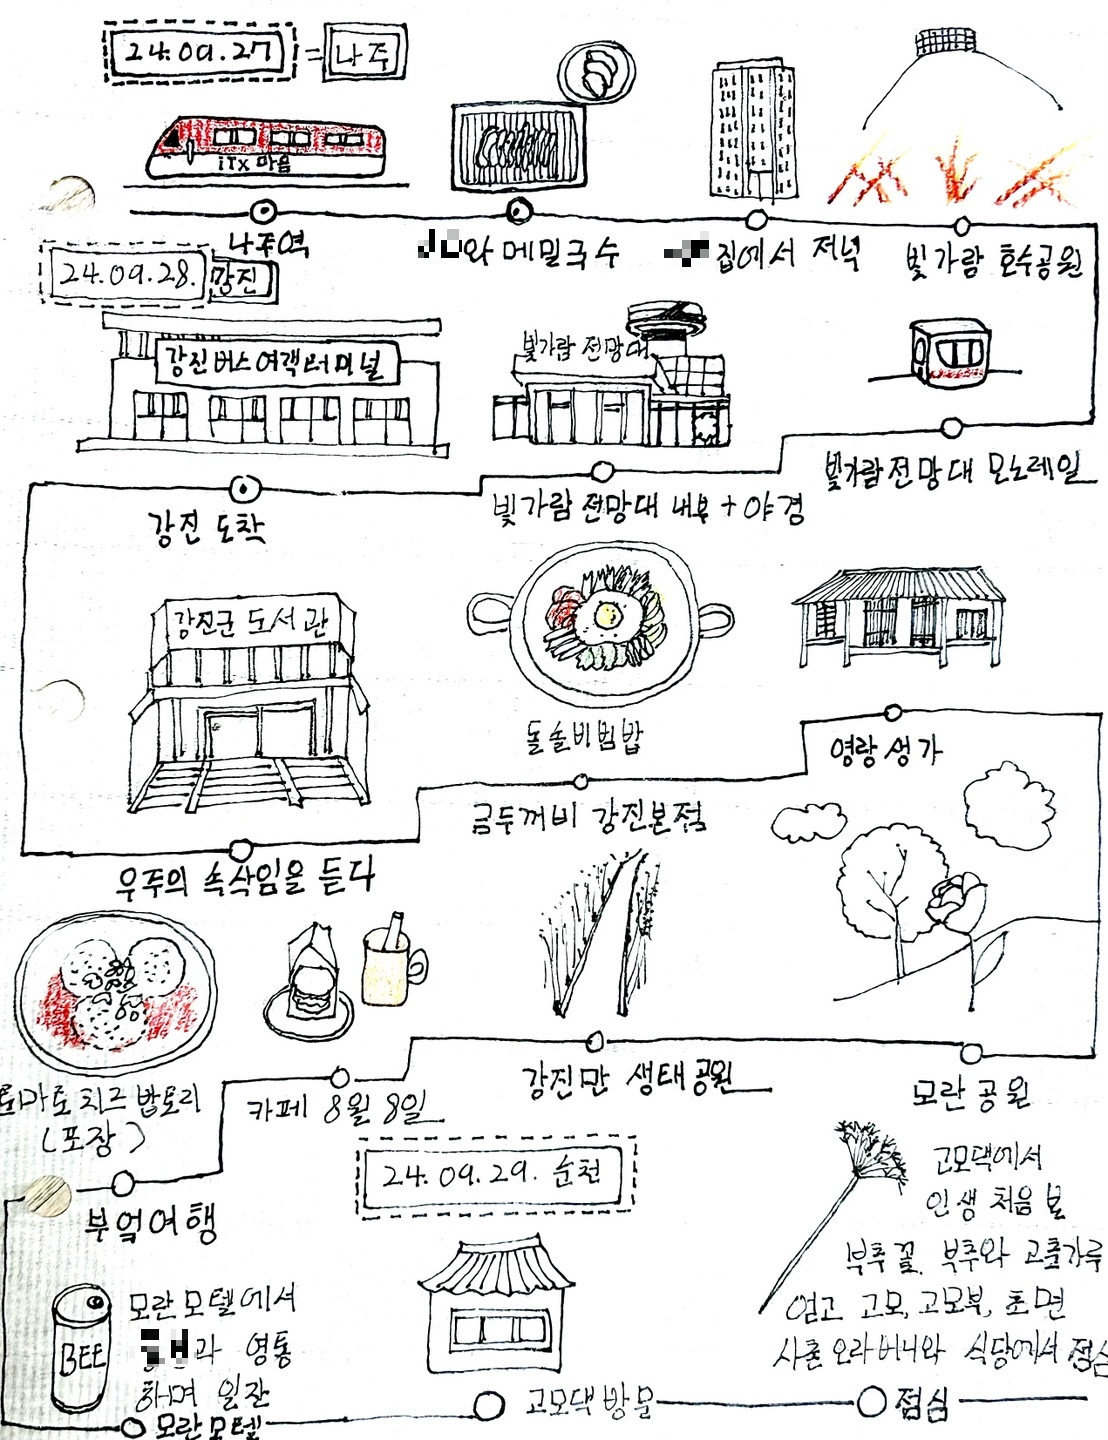 24.09.27 = 나주
iTx 마음
나주역
와 메밀국수
집에서 저녁
빛가람 호수공원
24.09.28. 강진
강진버스여객터미널
빛가람 전망대
빛가람전망대 모노레일
빛가람 전망대 내부 + 야경
강진 도착
강진군 도서관
돌솥비빔밥
영랑생가
금두꺼비 강진본점
우주의 속삭임을 듣다
토마토치즈 밥토리
(포장)
카페 8월 8일
강진만 생태공원
모란공원
부엌여행
24.09.29. 순천
고모댁에서
인생 처음 본
부추 꽃. 부추와 고춘가루
얻고 고모, 고모부, 초면
사촌 오라버니와 식당에서 점심
BEE
모란모텔에서
과 영통
하며 일잔
모란모텔
고모댁 방문
점심